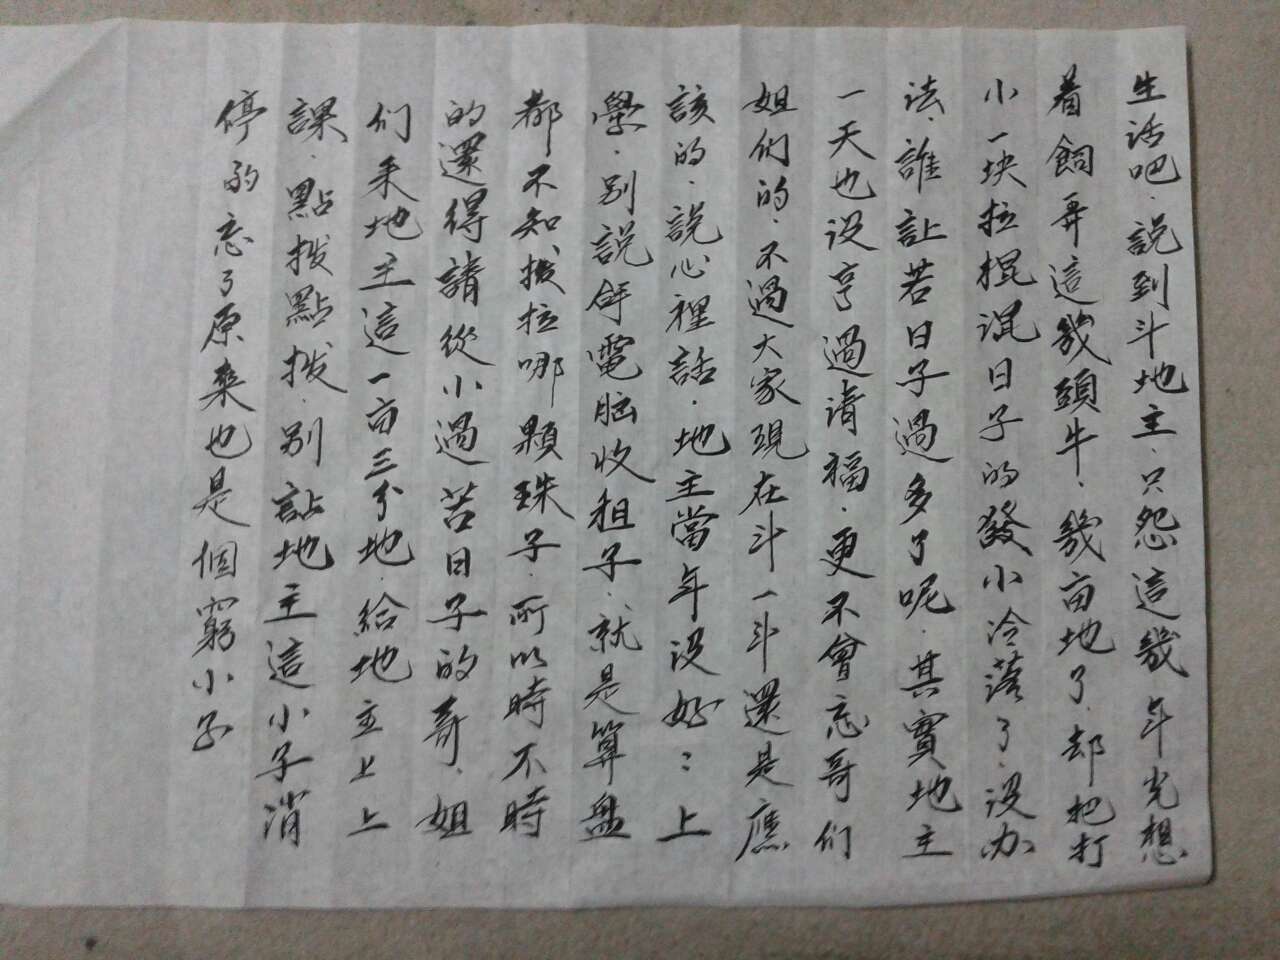 生活吧、說到斗地主、只怨這幾年光想
着飼弄這幾頭牛、幾亩地了、却把打
小一块拉棍混日子的發小冷落了、没办
法、誰让苦日子過多了呢、其實地主
一天也没享過清福、更不會忘哥们
姐们的、不過大家現在斗一斗還是應
該的、說心裡話、地主當年没好:上
學、别説用電脑收租子、就是算盘
都不知拨拉哪颗珠子、所以時不時
的還得請從小過苦日子的哥、姐
们来地主這一亩三分地、給地主上上
課、點拨點拨、别讓地主這小子消
停的忘了原来也是個窮小子